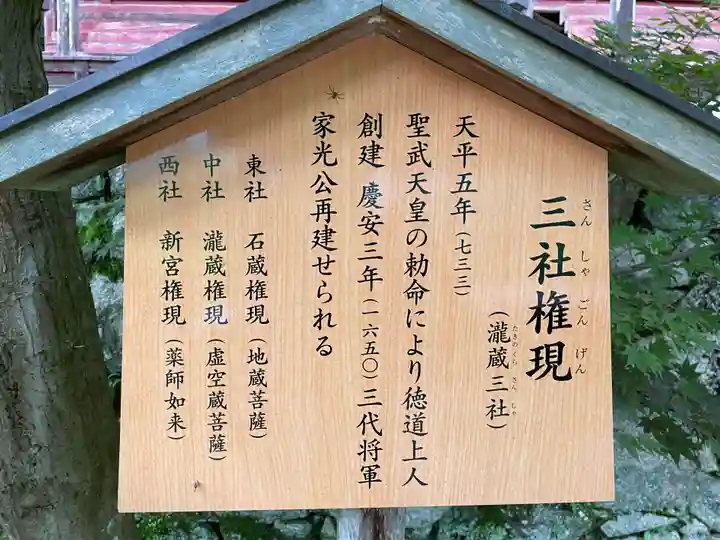 三社権現
さんしゃごんげん
(瀧蔵三社)
たきのくらさんしゃ
天平五年(七三三)
聖武天皇の勅命により徳道上人
創建 慶安三年(一六五〇)三代将軍
家光公再建せられる
東社 石蔵権現(地蔵菩薩)
中社 瀧蔵権現(虚空蔵菩薩)
西社 新宮権現(薬師如来)